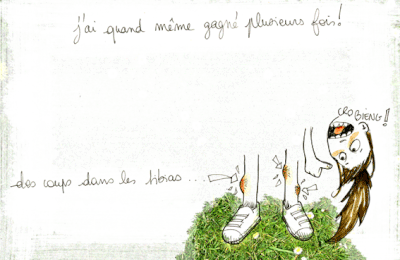 j'ai quand même gagné plusieurs fois!
CRO BIENG!!
des coups dans les tibias...